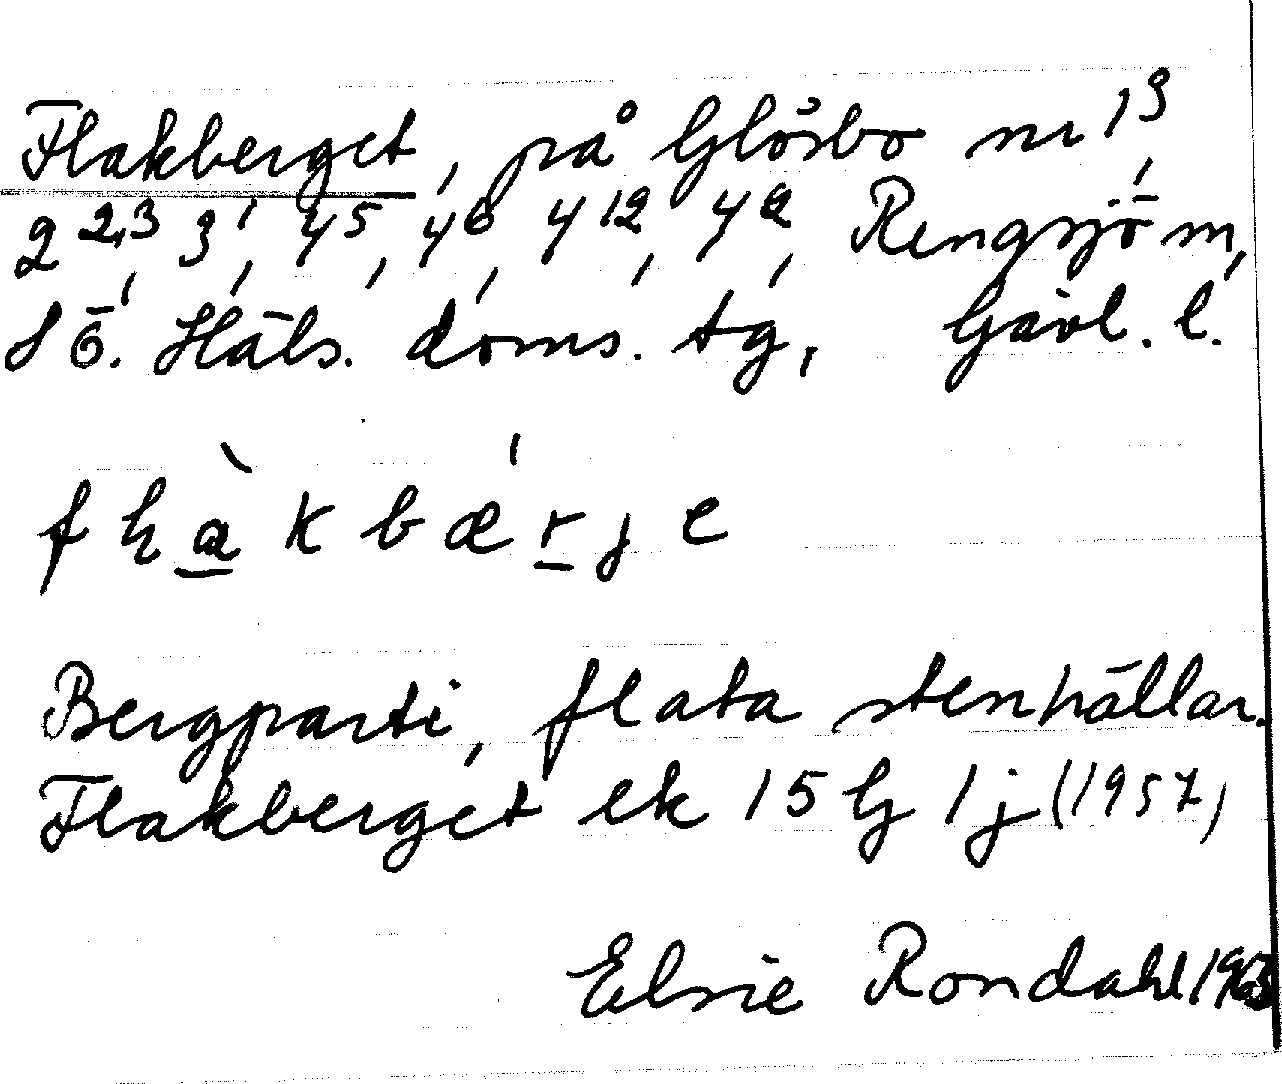 Flakberget, på Glösbo nr 1³,
2²,³, 3¹, 4⁵, 4⁶, 4¹², 4², Rengsjö sn,
SÖ. Häls. doms. tg, Gävl. l.
f ɽ à k b æ ŕ j e
Bergparti, flata stenhällar.
Flakberget ek 15 G 1 j (1957)
Elsie Rondahl 1963